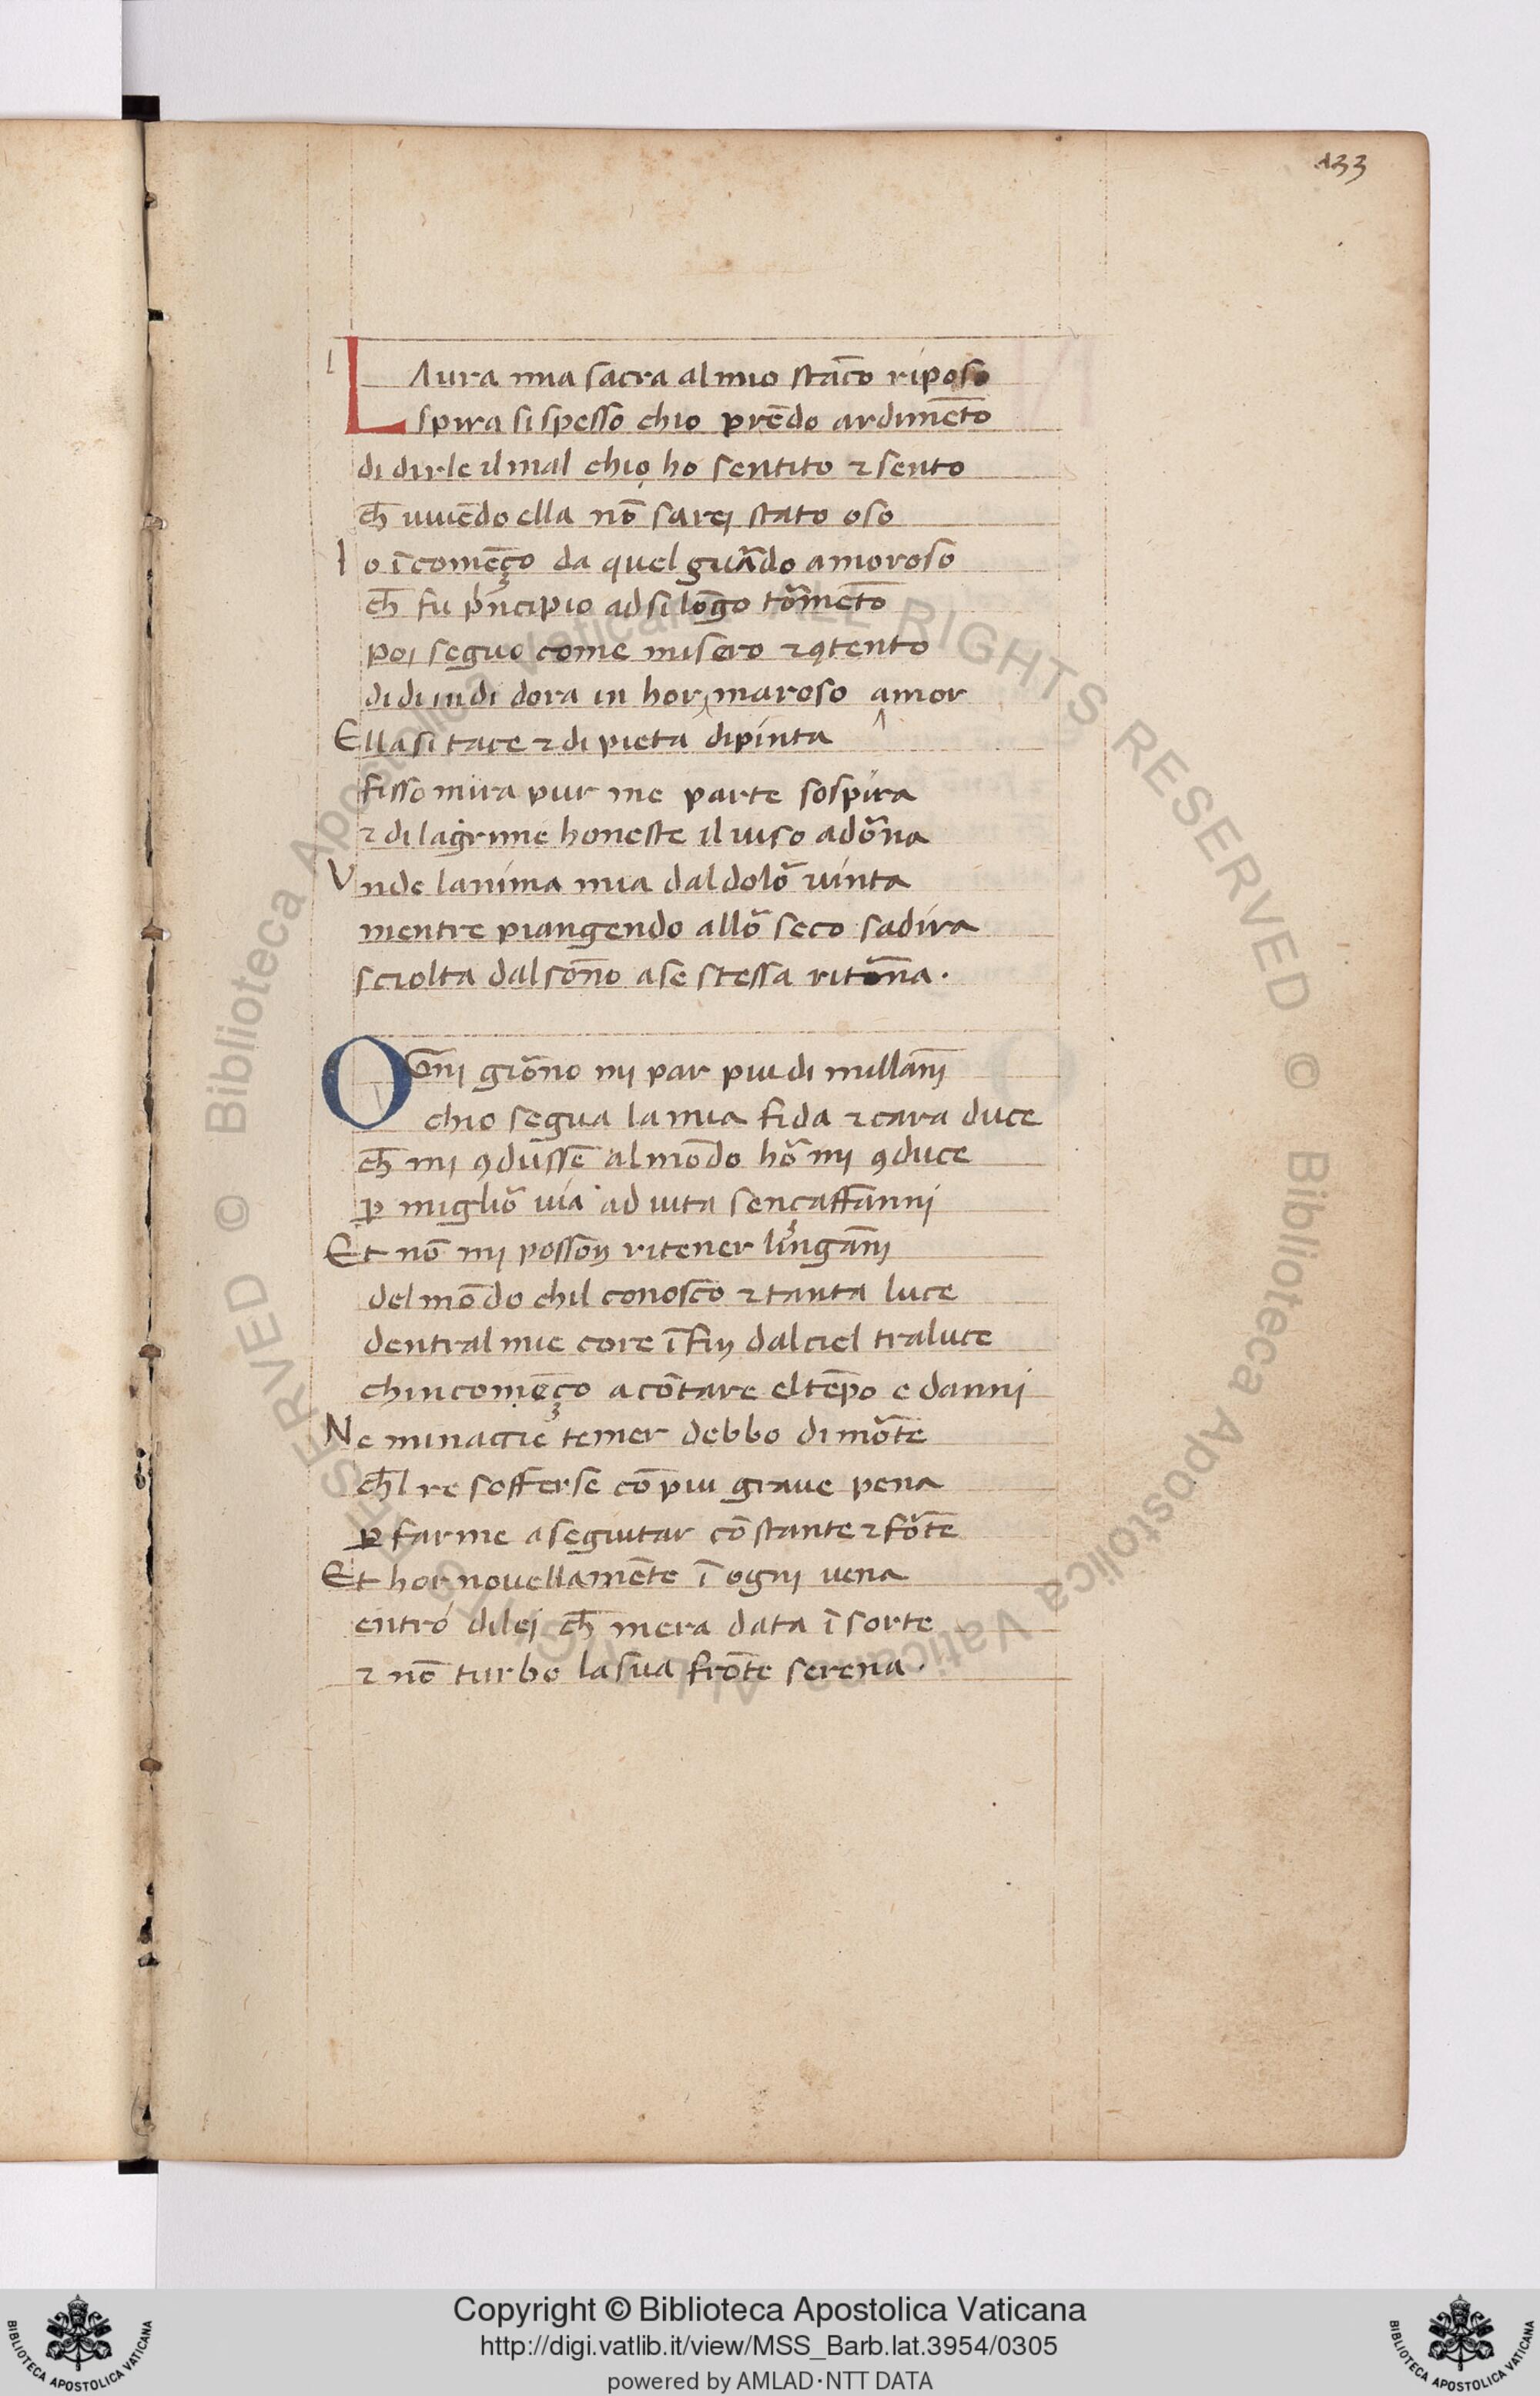 133
LAura mia sacra al mio stãco riposo
spira si spesso chio prẽdo ardimẽto
di dirle il mal chio ho sentito ⁊ sento
ch̃ uiuẽdo ella nõ sarej stato oso
Io ĩcomẽço da quel guãdo amoroso
ch̃ fu pͥncipio ad si lõgo tormẽto
poj seguo come misero ⁊ ꝯtento
di di in di dora in hor maroso amor
Ella si tace ⁊ di pieta dipinta
fisso mira pur me parte sospira
⁊ di lagrime honeste il uiso adorna
Vnde lanima mia dal dolor uinta
mentre piangendo allor seco sadira
sciolta dal sõno a se stessa ritorna.
Ogni giorno mj par piu di millãnj
chio segua la mia fida ⁊ cara duce
ch̃ mj ꝯdusse al mõdo hor mj ꝯduce
ꝑ miglior uia ad uita sençaffannj
Et nõ mj posson ritener lingãnj
del mõdo chil conosco ⁊ tanta luce
dentral mie core ĩfin dal ciel traluce
chincomẽço a cõtare el tẽpo e dannj
Ne minacie temer debbo di morte
ch̃l re sofferse cõ piu graue pena
ꝑ farme a seguitar cõstante ⁊ forte
Et hor nouellamẽte ĩ ognj uena
entro di lej ch̃ mera data ĩ sorte
⁊ nõ turbo la sua frõte serena.
© Biblioteca Apostolica Vaticana ALL RIGHTS RESERVED © Biblioteca Apostolica Vaticana ALL RIGHTS RESERVED
Copyright © Biblioteca Apostolica Vaticana
http://digi.vatlib.it/view/MSS_Barb.lat.3954/0305
powered by AMLAD·NTT DATA
BIBLIOTECA APOSTOLICA VATICANA
BIBLIOTECA APOSTOLICA VATICANA